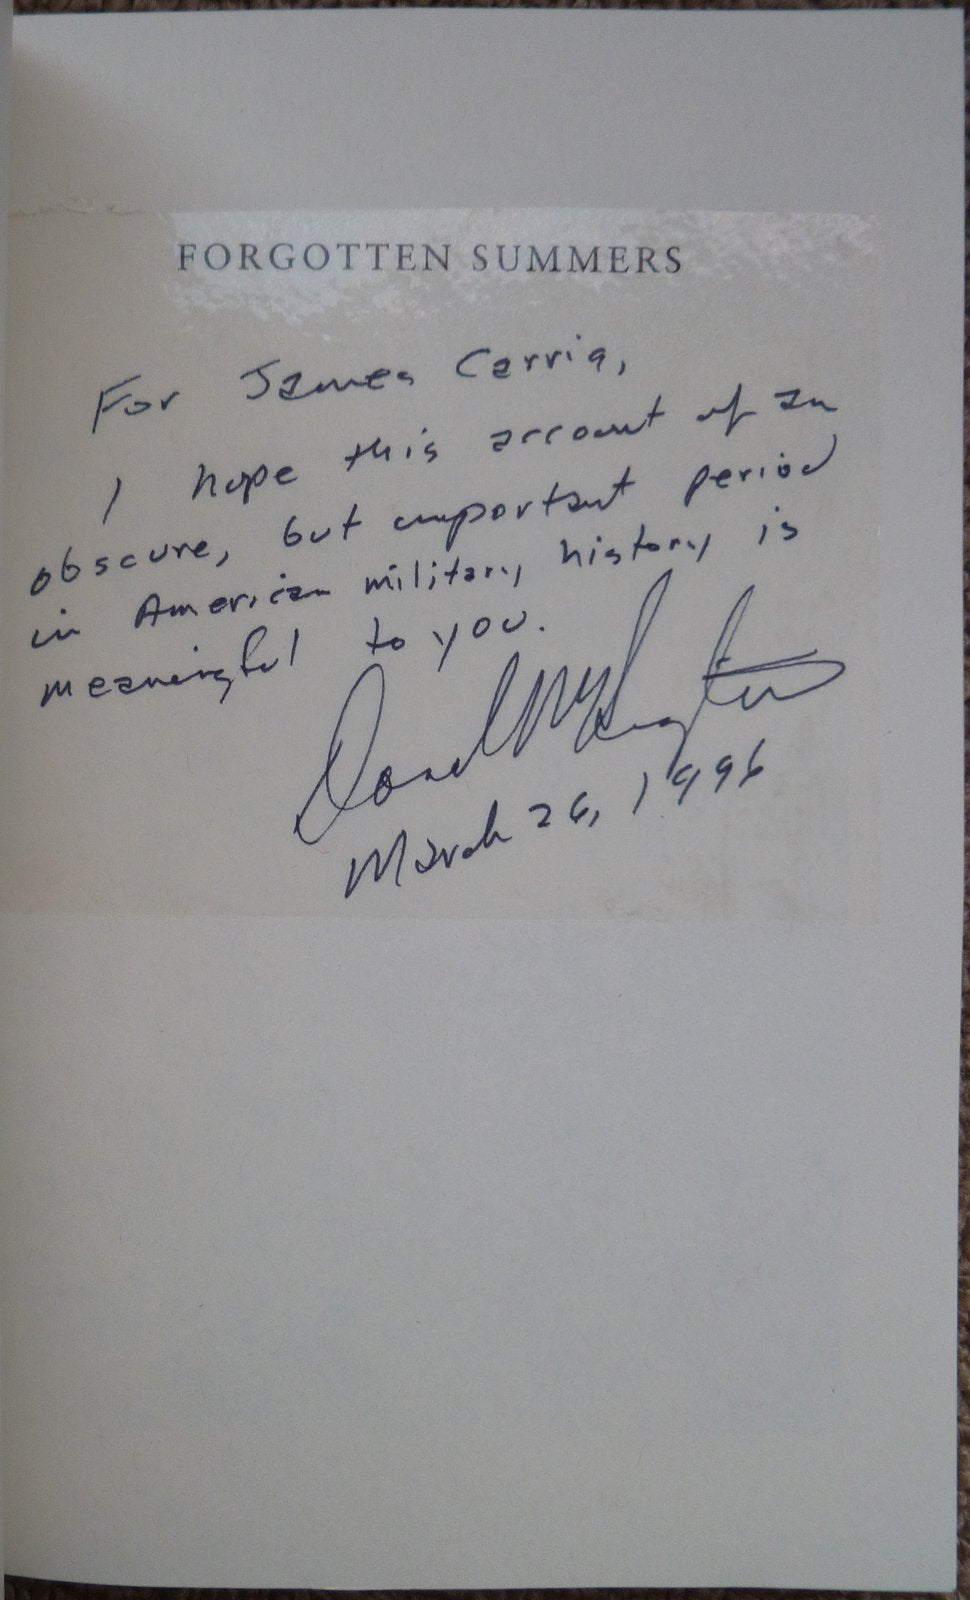 FORGOTTEN SUMMERS
For James Carria,
I hope this account of an
obscure, but important period
in American military history is
meaningful to you.
Donald M Kington
March 26, 1996